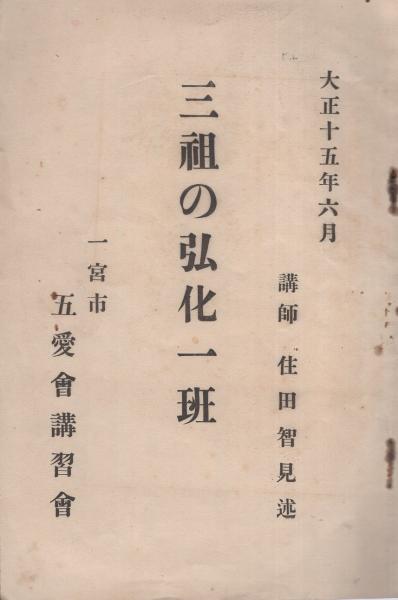 大正十五年六月
講師 住田智見述
三祖の弘化一班
一宮市
五愛會講習會